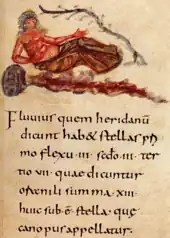 Fluvius quem heridanū
dicunt hab& stellas pri
mo flexu · iii · sedo · iii · ter
tio vii · quae dicuntur
summa · xiii ·
huic sub · ē · stella · que
canopus appellatur.